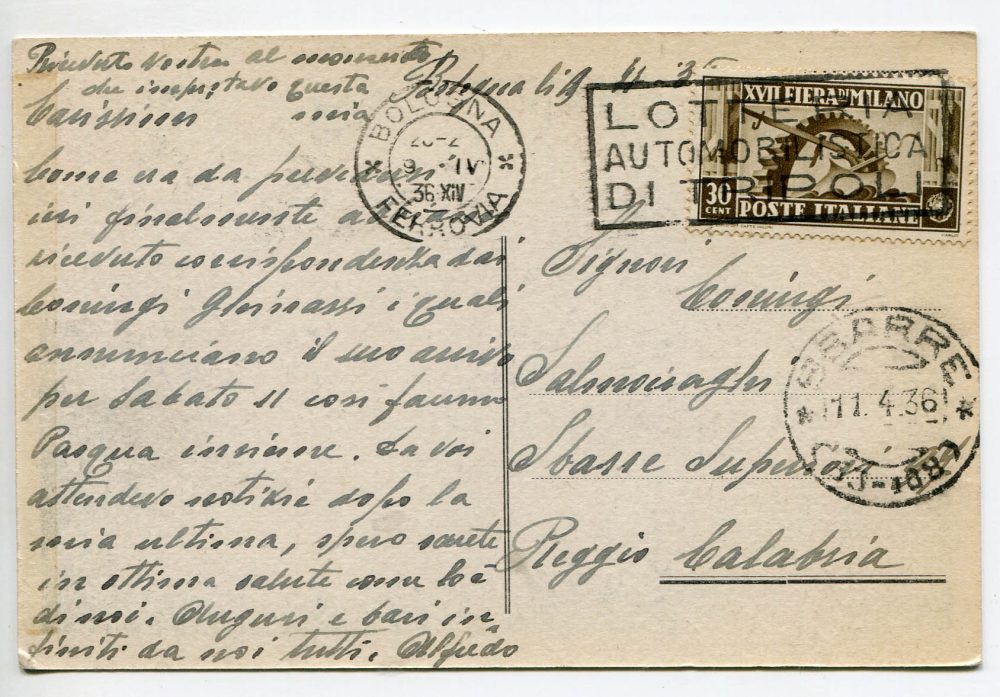 Ricevuto vostra al momento
che impostavo questa
Bologna li 9 4 36
Carissimi miei
Come era da prevedersi
ieri finalmente abbiamo
ricevuto corrispondenza dai
Coningi Ghinassi i quali
annunciano il suo arrivo
per Sabato 11 così faremo
Pasqua insieme. Da voi
attendevo notizie dopo la
mia ultima, spero sarete
in ottima salute come lo è
di noi. Auguri e baci in=
finiti da noi tutti. Alfredo
BOLOGNA
FERROVIA
20-21
9 - IV
36 XIV
LOTTERIA
AUTOMOBILISTICA
DI TRIPOLI
XVII FIERA DI MILANO
30
CENT
POSTE ITALIANE
Signori
Coningi
Salmoiraghi
Sbarre Superiori
Reggio Calabria
SBARRE
11. 4. 36